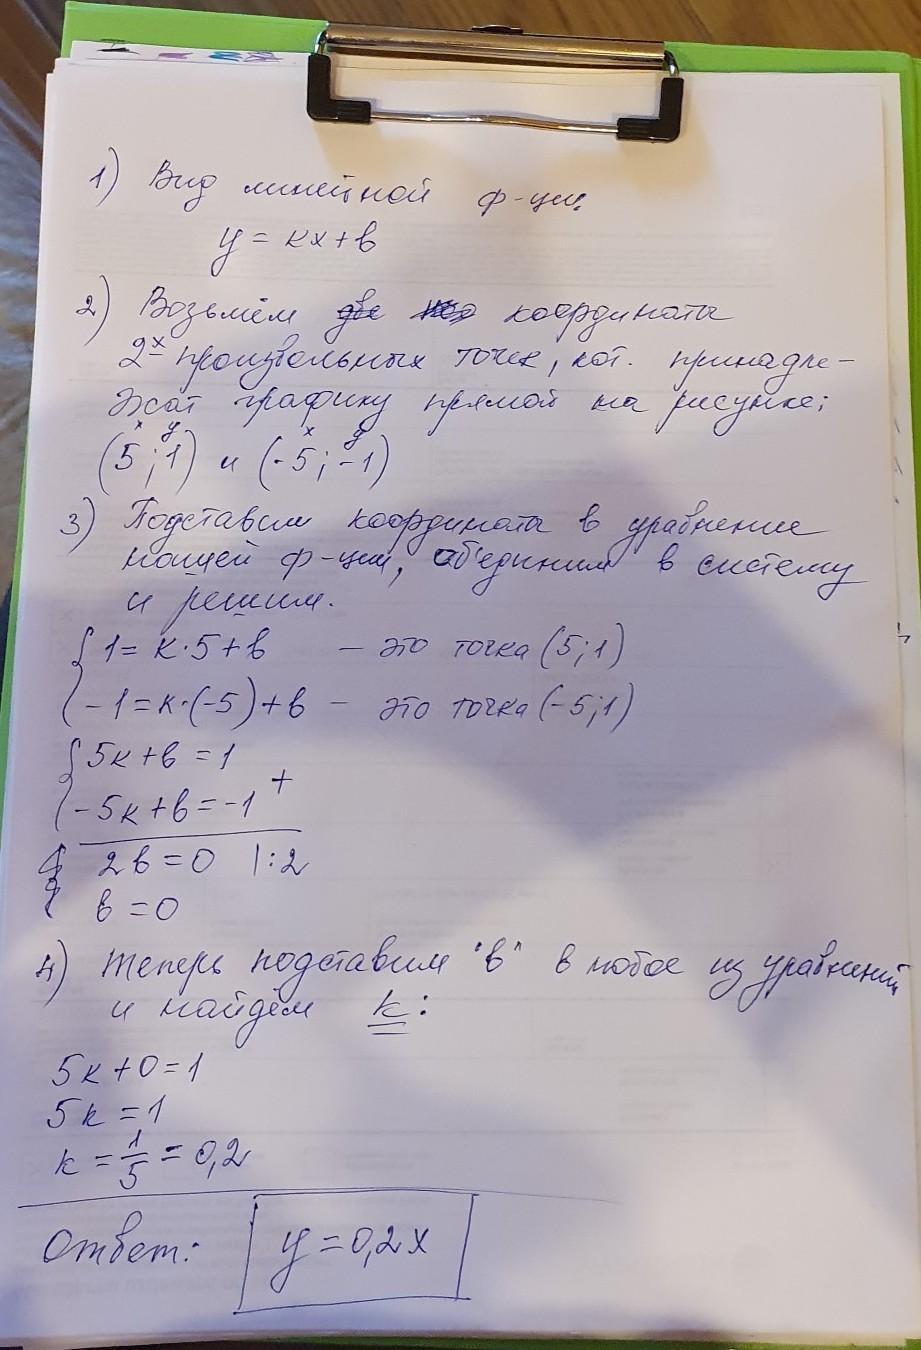 1) Вид линейной ф-ции:
y = кx + в
2) Возьмём две координаты
2х произвольных точек, кот. принадле-
жат графику прямой на рисунке:
x y x y
(5; 1) и (-5; -1)
3) Подставим координаты в уравнение
нашей ф-ции, объединим в систему
и решим.
{ 1 = к·5 + в – это точка (5; 1)
-1 = к·(-5) + в – это точка (-5; 1)
{ 5к + в = 1
-5к + в = -1 +
2в = 0 |:2
в = 0
4) Теперь подставим "в" в любое из уравнений
и найдём k:
5к + 0 = 1
5к = 1
к = 1/5 = 0,2
Ответ: y = 0,2x